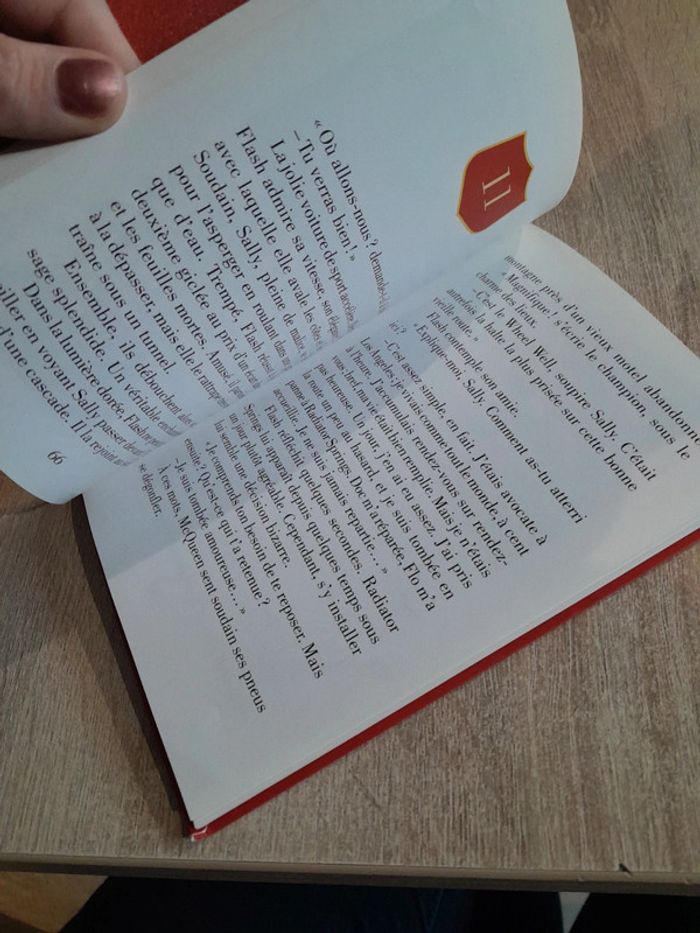 II
« Où allons-nous ? demande-t-il
– Tu verras bien ! »
La jolie voiture de sport accélère,
Flash admire sa vitesse, son
avec laquelle elle avale les
Soudain, Sally, pleine de
pour l'asperger en roulant dans
que d'eau. Trempé, Flash
deuxième giclée au prix d'un
et les feuilles mortes. Amusé, il
à la dépasser, mais elle le
traîne sous un tunnel.
Ensemble, ils débouchent alors
sage splendide. Un véritable
Dans la lumière dorée, Flash
en voyant Sally passer
d'une cascade. Il la rejoint
66
montagne près d'un vieux motel abandonn
« Magnifique ! s'écrie le champion, sous le
charme des lieux.
– C'est le Wheel Well, soupire Sally. C'était
autrefois la halte la plus prisée sur cette bonne
vieille route. »
Flash contemple son amie.
« Explique-moi, Sally. Comment as-tu atterri
ici ?
– C'est assez simple, en fait. J'étais avocate à
Los Angeles ; je vivais comme tout le monde, à cent
à l'heure. J'accumulais rendez-vous sur rendez-
vous ; bref, ma vie était bien remplie. Mais je n'étais
pas heureuse. Un jour, j'en ai eu assez. J'ai pris
la route un peu au hasard, et je suis tombée en
panne à Radiator Springs. Doc m'a réparée, Flo m'a
accueillie. Je ne suis jamais repartie... »
Flash réfléchit quelques secondes. Radiator
Springs lui apparaît depuis quelques temps sous
un jour plutôt agréable. Cependant, s'y installer
lui semble une décision bizarre.
« Je comprends ton besoin de te reposer. Mais
ensuite ? Qu'est-ce qui t'a retenue ?
– Je suis tombée amoureuse... »
À ces mots, McQueen sent soudain ses pneus
se dégonfler.